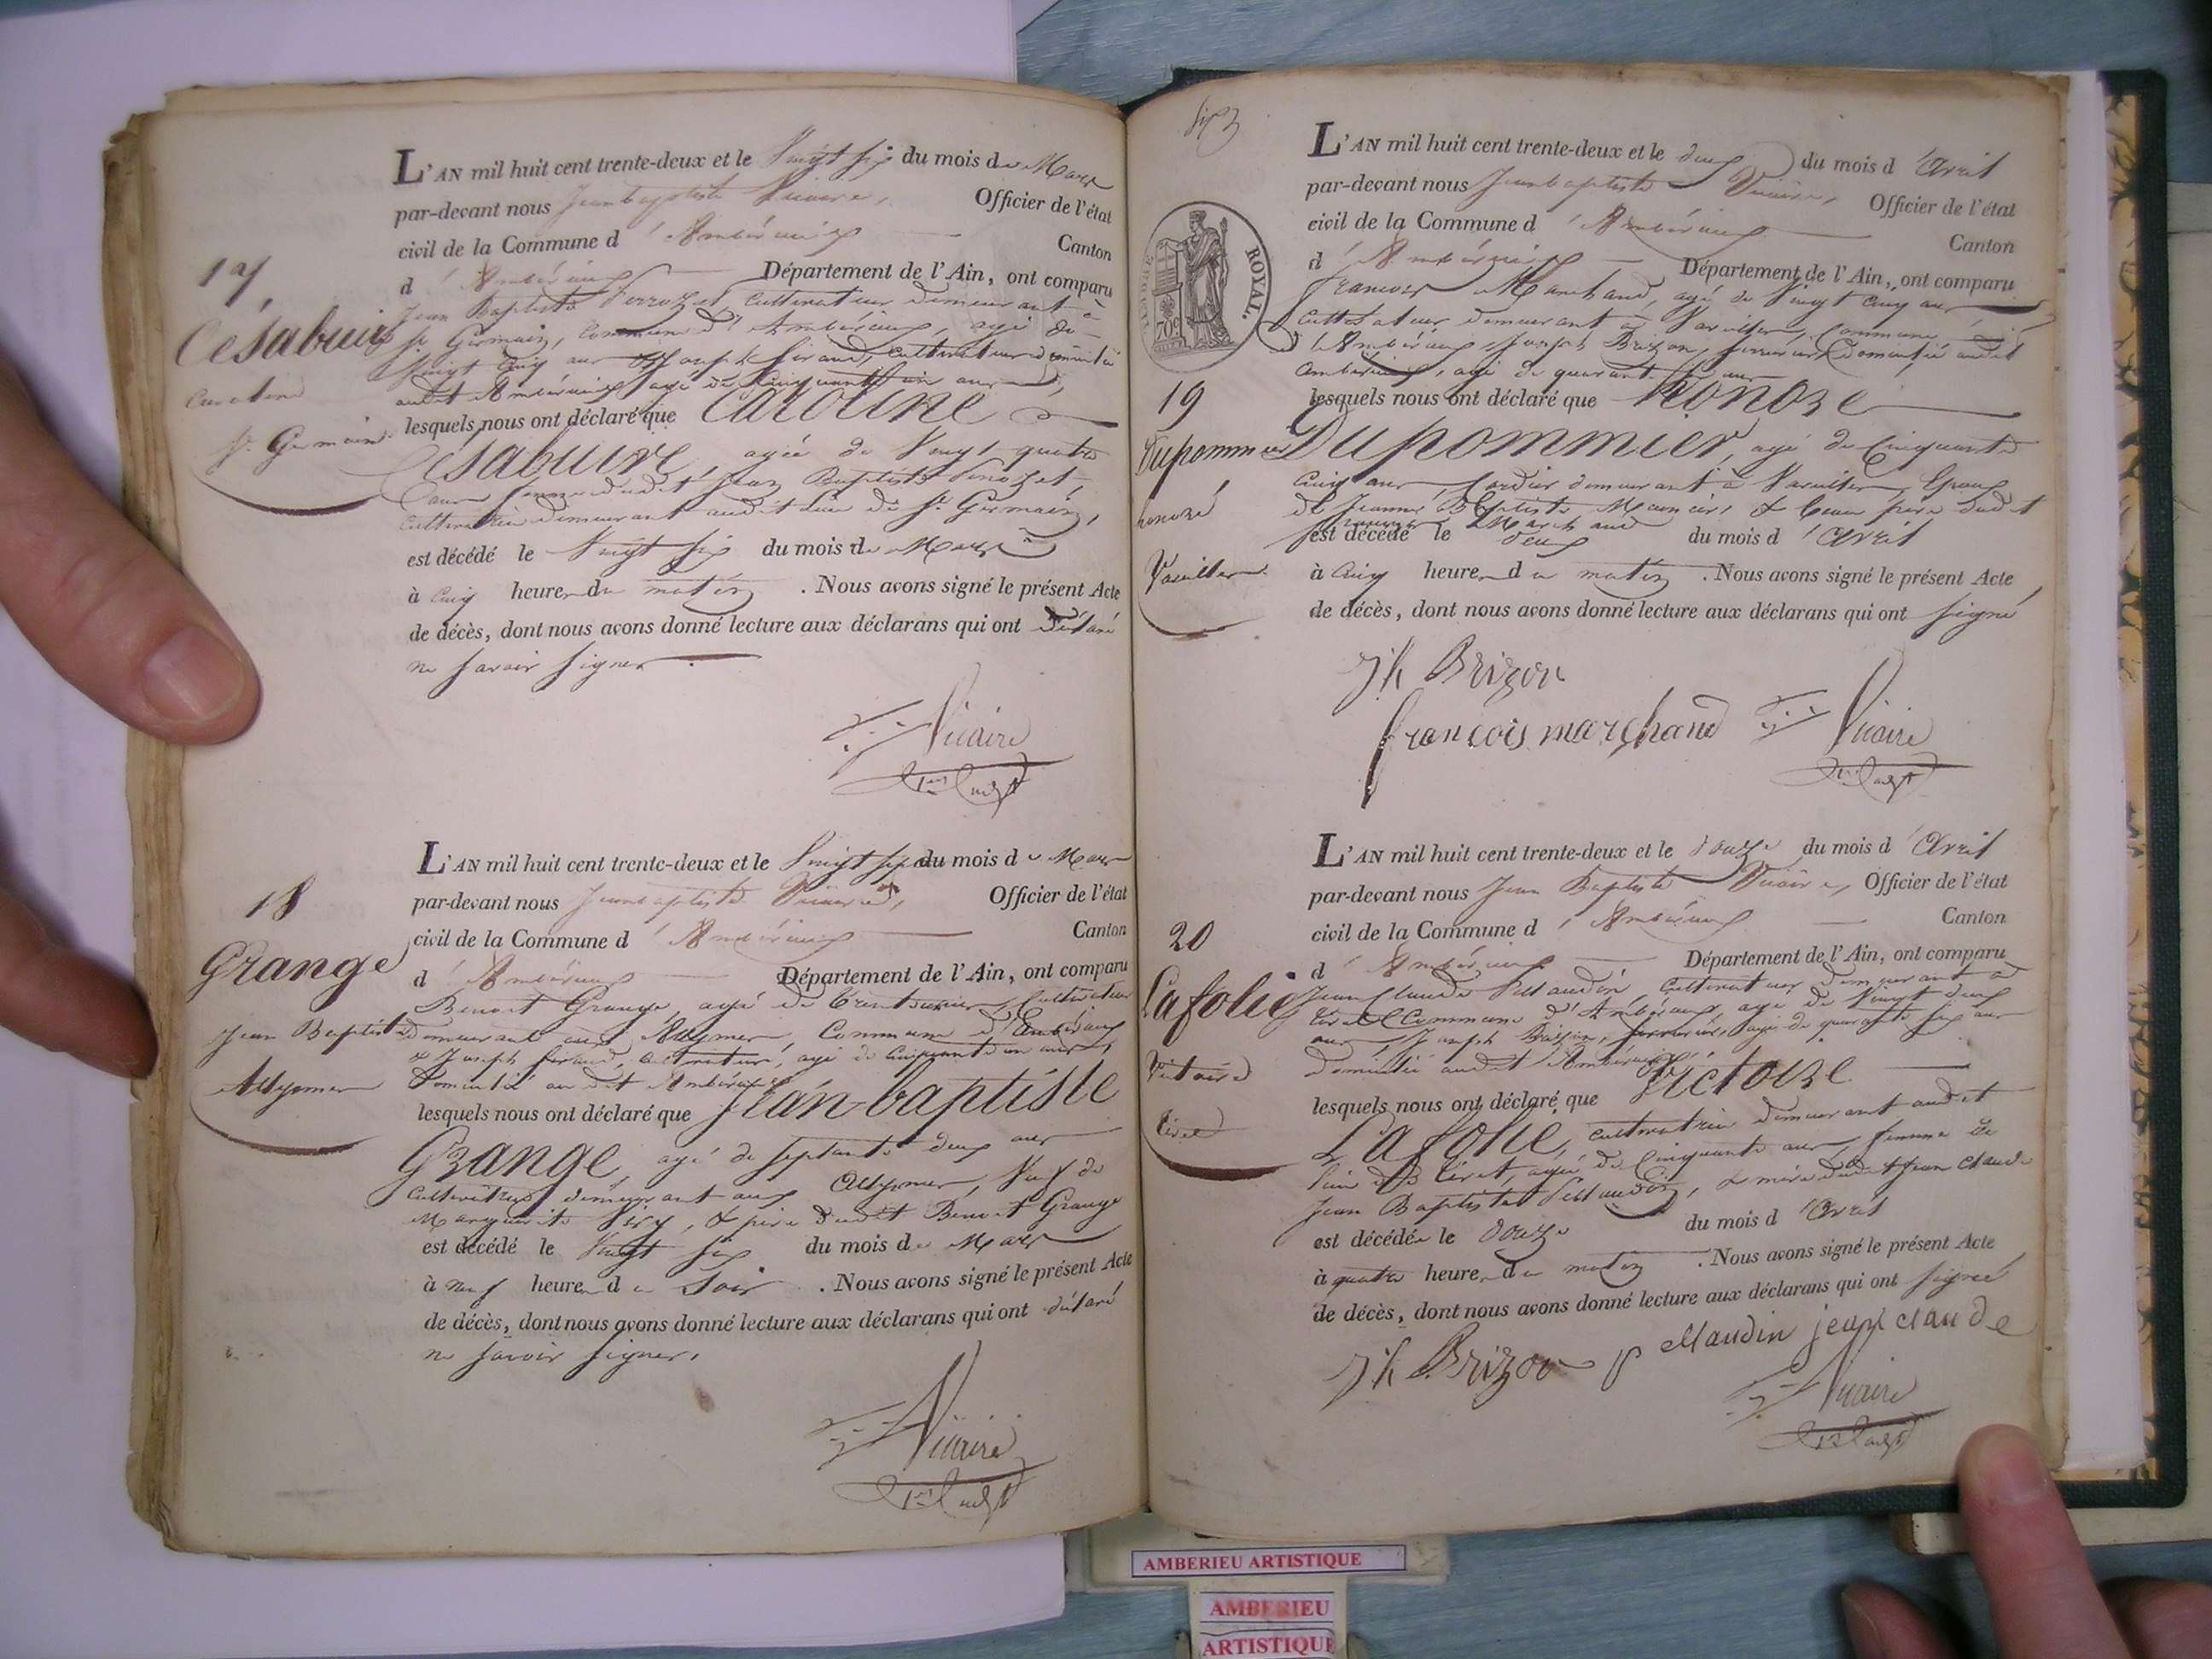 17
Césabuire
Caroline
St. Germain
L'AN mil huit cent trente-deux et le Vingt six du mois de Mars
par-devant nous Jean baptiste Vicaire, Officier de l'état
civil de la Commune d'Ambérieux Canton
d'Ambérieux Département de l'Ain, ont comparu
Jean Baptiste cultivateur demeurant à
St Germain, commune d'Ambérieux, agé de
Vingt cinq ans & Joseph Giraud, cultivateur domicilié
audit Ambérieux agé de Cinquante un ans,
lesquels nous ont déclaré que Caroline
Césabuire, agée de Vingt quatre
ans femme dudit Jean Baptiste
cultivatrice demeurant audit lieu de St. Germain,
est décédé le Vingt six du mois de Mars
à cinq heures du matin. Nous avons signé le présent Acte
de décès, dont nous avons donné lecture aux déclarans qui ont déclaré
ne savoir signer.
Vicaire
18
Grange
Jean Baptiste
Allymes
L'AN mil huit cent trente-deux et le Vingt sept du mois de Mars
par-devant nous Jean baptiste Vicaire, Officier de l'état
civil de la Commune d'Ambérieux Canton
d'Ambérieux Département de l'Ain, ont comparu
Benoit Grange, agé de cultivateur
demeurant aux Allymes, Commune d'Ambérieux
& Joseph Giraud, cultivateur, agé de cinquante un ans,
domicilié audit Ambérieux
lesquels nous ont déclaré que Jean-baptiste
Grange, agé de septante deux ans
cultivateur demeurant aux Allymes, Veuf de
Marguerite & père dudit Benoit Grange
est décédé le Vingt six du mois de Mars
à neuf heures du Soir. Nous avons signé le présent Acte
de décès, dont nous avons donné lecture aux déclarans qui ont déclaré
ne savoir signer.
Vicaire
TIMBRE ROYAL.
70c
19
Dupommier
honoré
Vareilles
L'AN mil huit cent trente-deux et le deux du mois d'Avril
par-devant nous Jean baptiste Vicaire, Officier de l'état
civil de la Commune d'Ambérieux Canton
d'Ambérieux Département de l'Ain, ont comparu
François Marchand, agé de Vingt cinq ans
cultivateur demeurant à Vareilles, commune
d'Ambérieux, Joseph Brizon, serrurier, domicilié audit
Ambérieux, agé de quarante six ans
lesquels nous ont déclaré que honoré
Dupommier, agé de Cinquante
cinq ans cordier demeurant à Vareilles, Epoux
de Jeanne Baptiste & beau père dudit
françois Marchand
est décédé le deux du mois d'Avril
à cinq heures du matin. Nous avons signé le présent Acte
de décès, dont nous avons donné lecture aux déclarans qui ont signé
Jh Brizon
françois marchand Vicaire
20
Lafolie
Victoire
Tiret
L'AN mil huit cent trente-deux et le douze du mois d'Avril
par-devant nous Jean Baptiste Vicaire, Officier de l'état
civil de la Commune d'Ambérieux Canton
d'Ambérieux Département de l'Ain, ont comparu
Jean Claude Pellaudin, cultivateur demeurant à
Tiret Commune d'Ambérieux, agé de Vingt deux
ans, & Joseph Brizon, serrurier, agé de quarante six ans
domicilié audit Ambérieux
lesquels nous ont déclaré que Victoire
Lafolie, cultivatrice demeurant audit
lieu de Tiret, agée de Cinquante ans, femme de
Jean Baptiste Pellaudin, & mère dudit Jean Claude
est décédée le douze du mois d'Avril
à quatre heures du matin. Nous avons signé le présent Acte
de décès, dont nous avons donné lecture aux déclarans qui ont signé
Jh Brizon pellaudin jean claude
Vicaire
AMBERIEU ARTISTIQUE
AMBERIEU
ARTISTIQUE